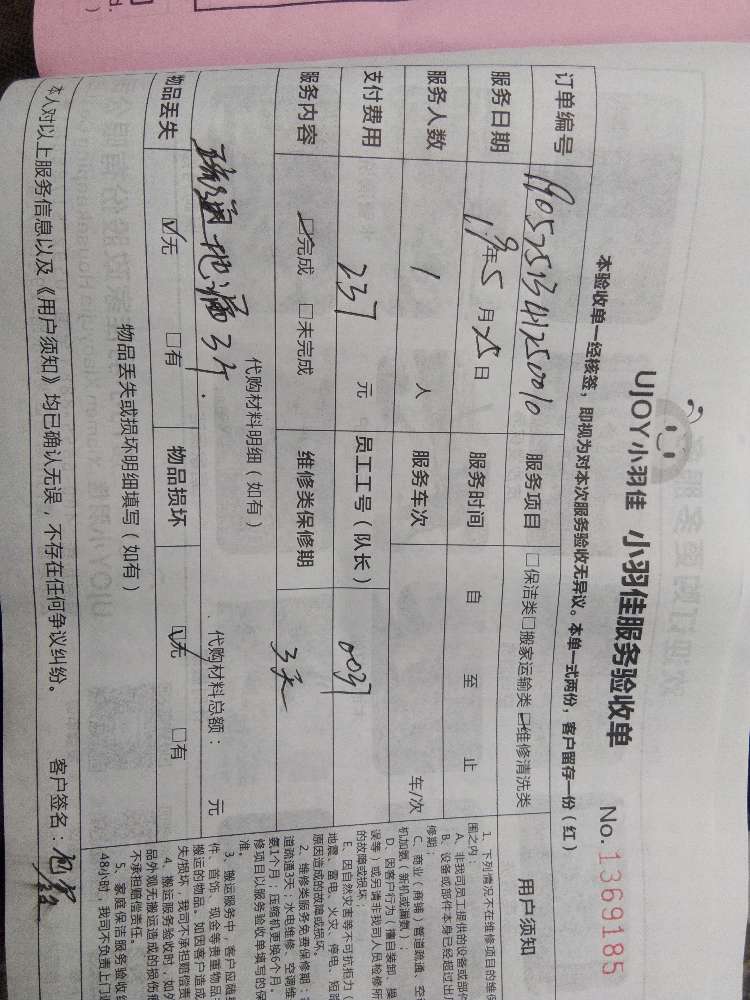 UJOY小羽佳 小羽佳服务验收单
No. 1369185
本验收单一经核签，即视为对本次服务验收无异议。本单一式两份，客户留存一份（红）
订单编号 服务项目 □保洁类□搬家运输类☑维修清洗类
服务日期 19年5月25日 服务时间 自 至 止
服务人数 1 人 服务车次 车/次
支付费用 237 元 员工工号（队长） 0037
服务内容 ☑完成 □未完成 维修类保修期 3天
代购材料明细（如有）
疏通地漏3个. 代购材料总额： 元
物品丢失 ☑无 □有 物品损坏 ☑无 □有
物品丢失或损坏明细填写（如有）
本人对以上服务信息以及《用户须知》均已确认无误，不存在任何争议纠纷。 客户签名：
用户须知
1、下列情况不在维修项目的维保
围之内：
A、非我司员工提供的设备或部件
B、设备或部件本身已经超过出厂
修期；
C、商业（商铺）管道疏通、空
机加氨（新机或漏氨）；
D、因客户行为（擅自装卸、操
误等）或另请非我司人员检修所
的故障或损坏；
E、因自然灾害等不可抗拒力（
地震、雷电、火灾、停电、短路
原因造成的故障或损坏。
2、维修类服务免费保修期：
道疏通3天；水电维修、空调维
氨1个月；压缩机更换6个月。
修项目以服务验收单填写的保
准。
3、搬运服务中，客户应随身
件、首饰、现金等贵重物品；
搬运的物品。如因客户造成
失/损坏，我司不承担赔偿责
4、搬运服务验收时，如外
品外观无搬运造成的损伤痕
不承担赔偿责任。
5、家庭保洁服务验收
48小时，我司不负责上门